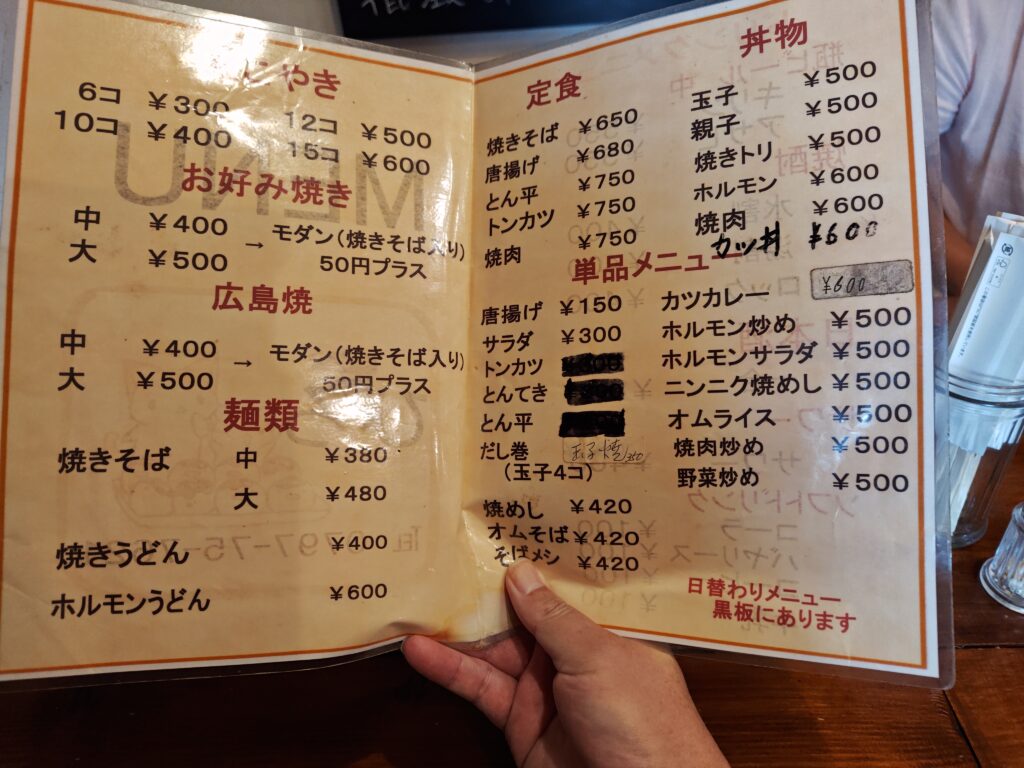 にやき
6コ ¥300
10コ ¥400
12コ ¥500
15コ ¥600
お好み焼き
中 ¥400
大 ¥500
→ モダン(焼きそば入り)
50円プラス
広島焼
中 ¥400
大 ¥500
→ モダン(焼きそば入り)
50円プラス
麺類
焼きそば 中 ¥380
大 ¥480
焼きうどん ¥400
ホルモンうどん ¥600
定食
焼きそば ¥650
唐揚げ ¥680
とん平 ¥750
トンカツ ¥750
焼肉 ¥750
丼物
玉子 ¥500
親子 ¥500
焼きトリ ¥500
ホルモン ¥600
焼肉 ¥600
カツ丼 ¥600
単品メニュー
唐揚げ ¥150
サラダ ¥300
トンカツ
とんてき
とん平
だし巻 玉子焼 350
(玉子4コ)
焼めし ¥420
オムそば ¥420
そばメシ ¥420
カツカレー ¥600
ホルモン炒め ¥500
ホルモンサラダ ¥500
ニンニク焼めし ¥500
オムライス ¥500
焼肉炒め ¥500
野菜炒め ¥500
日替わりメニュー
黒板にあります